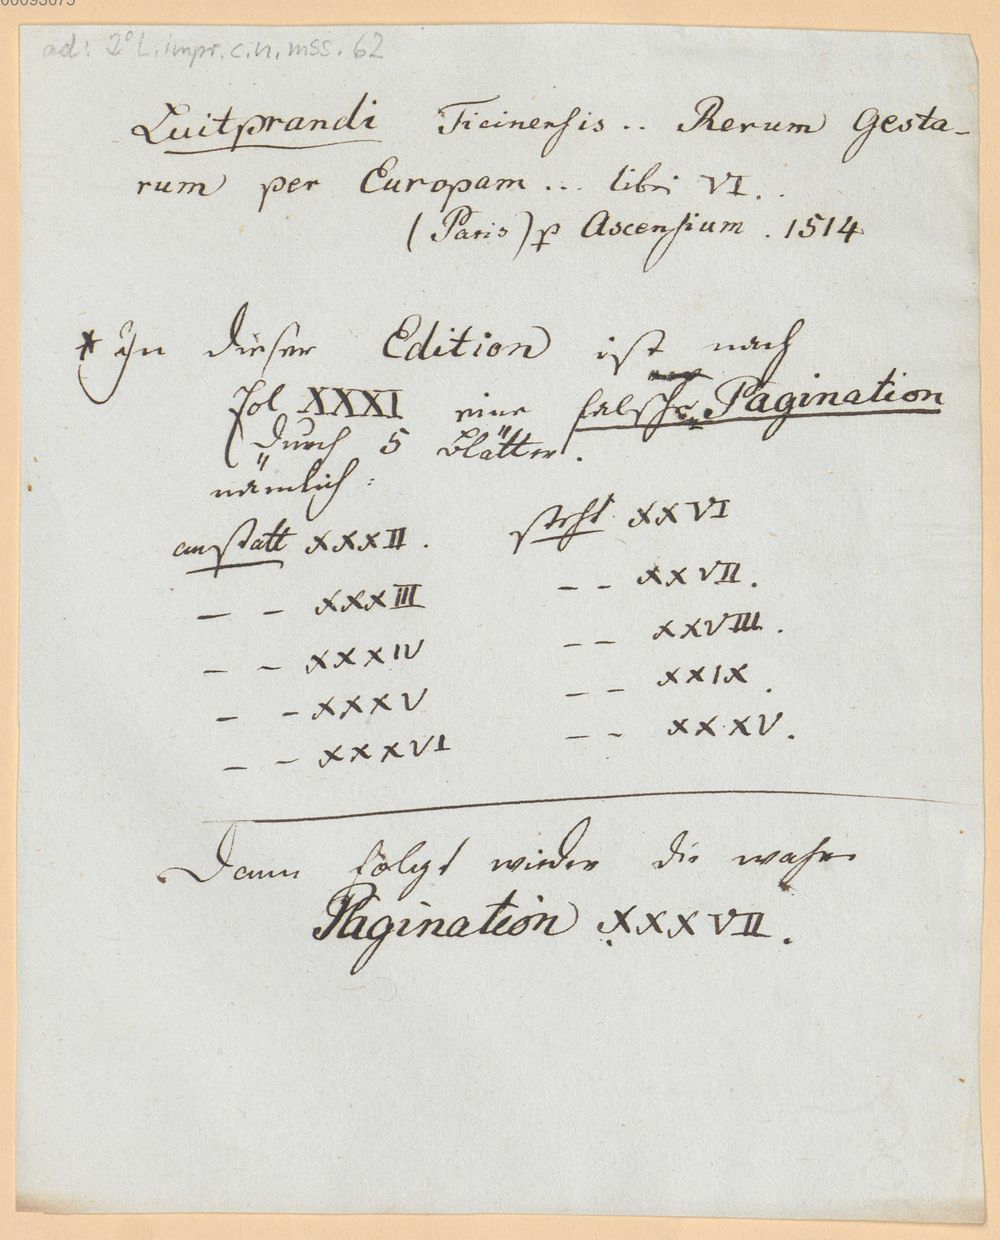 00093075
ad: 2° L. impr. c. n. mss. 62
Luitprandi Ticinensis .. Rerum Gesta-
rum per Europam ... libri VI..
(Paris) p Ascensium . 1514
* In dieser Edition ist nach
Fol XXXI eine falsche Pagination
(durch 5 Blätter.
nämlich :
anstatt XXXII . steht XXVI
– – XXXIII – – XXVII.
– – XXXIV – – XXVIII.
– – XXXV – – XXIX.
– – XXXVI – – XXXV.
Dann folgt wieder die wahre
Pagination XXXVII.